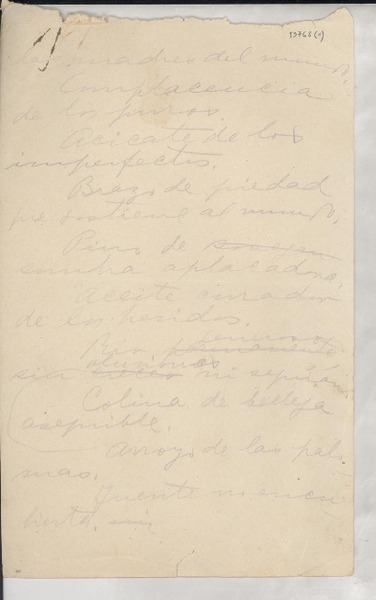 13768(1)
las madres del mundo.
Complacencia
de los puros.
Acicate de los
imperfectos.
Brazo de piedad
que sostiene al mundo.
Pino de
sombra aplacadora.
Aceite curador
de los heridos.
Río generoso
sin ni sequía
Colina de belleza
asequible.
Arroyo de las pal-
mas.
Fuente no encu-
bierta, sin